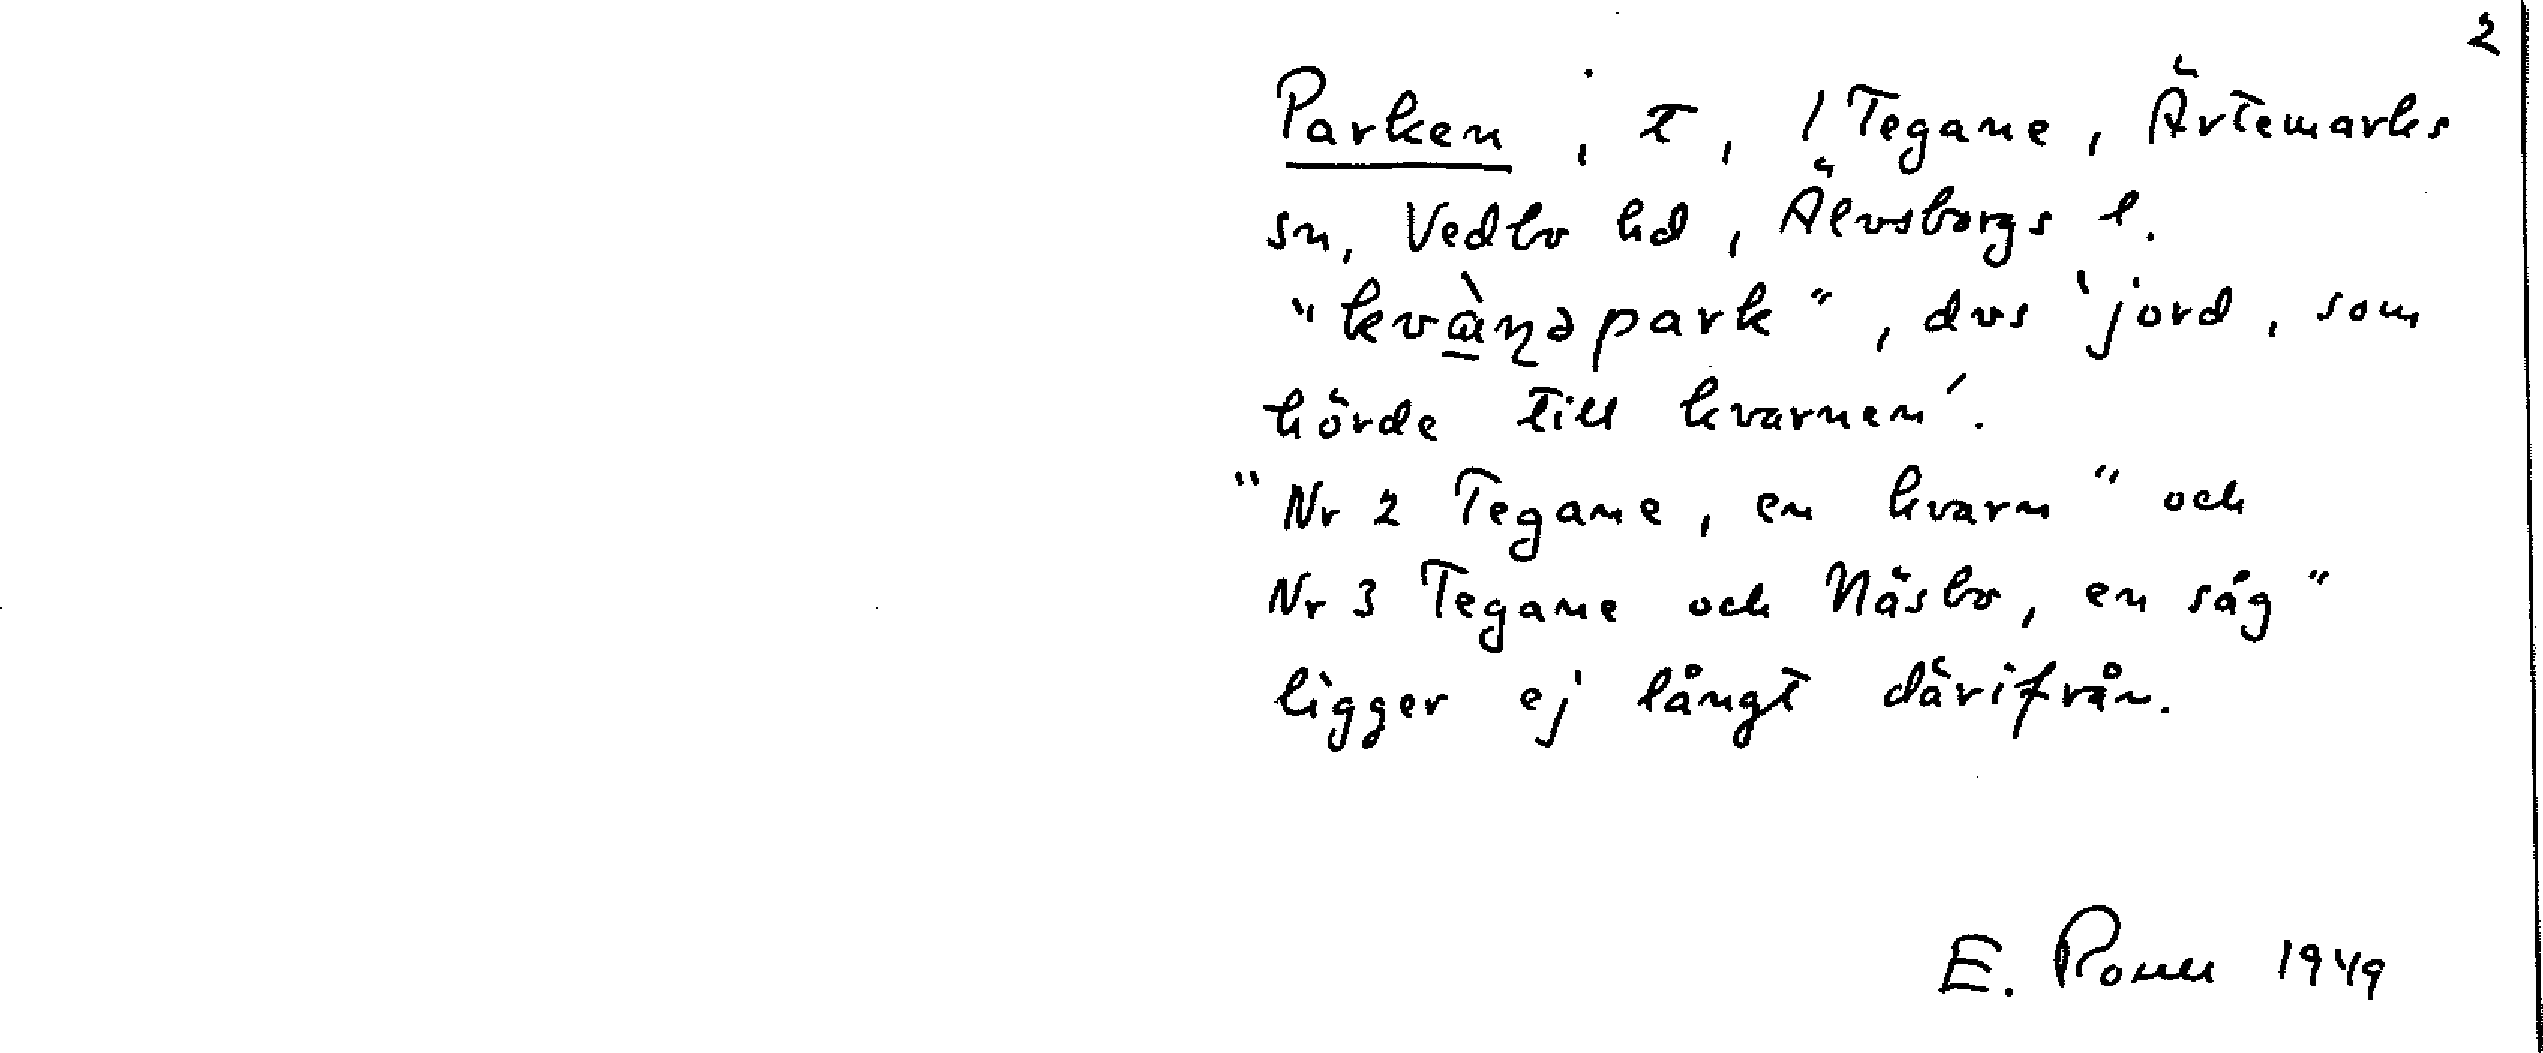 2
Parken, t, 1 Tegane, Ärtemarks
sn, Vedbo hd, Älvsborgs l.
"kvàṇəpark", dvs 'jord, som
hörde till kvarnen'.
"Nr 2 Tegane, en kvarn" och
Nr 3 Tegane och Näsbo, en såg"
ligger ej långt därifrån.
E. 1949